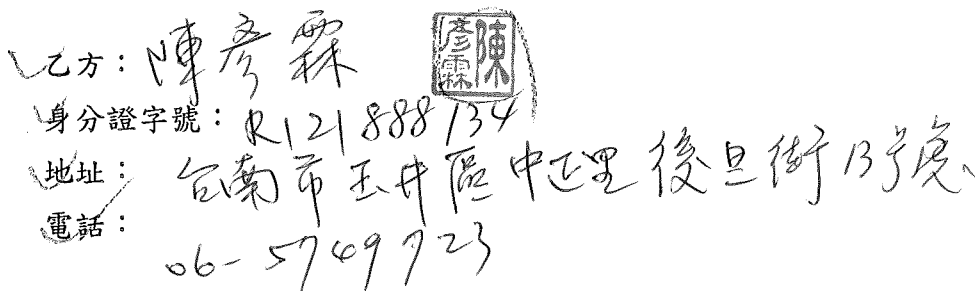 乙方：陳彥霖
陳彥霖
身分證字號：R121888134
地址：台南市玉井區中正里後旦街13号
電話：
06-5749723